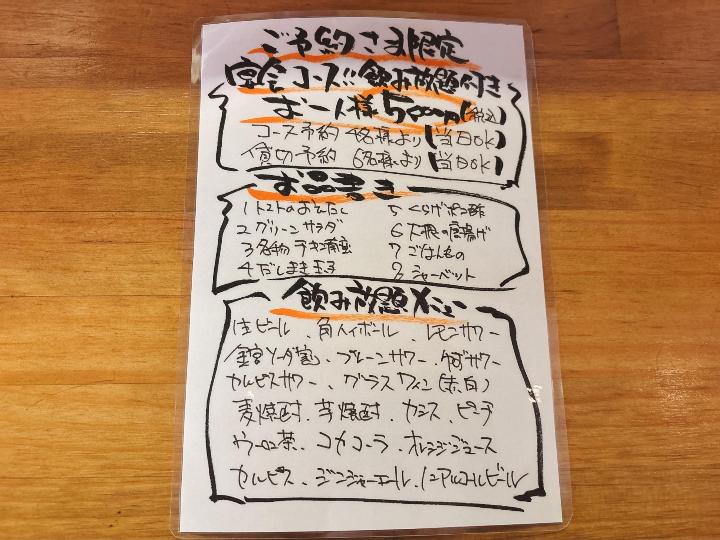 ご予約さま限定
宴会コース!! 飲み放題付き
お一人様 5000円(税込)
コース予約 4名様より【当日OK】
貸切予約 6名様より【当日OK】
お品書き
1 トマトのおひたし
2 グリーンサラダ
3 名物 チキン南蛮
4 だしまき玉子
5 くらげポン酢
6 大根の唐揚げ
7 ごはんもの
8 シャーベット
飲み放題メニュー
生ビール、角ハイボール、レモンサワー
金宮ソーダ割、プレーンサワー、サワー
カルピスサワー、グラスワイン(赤、白)
麦焼酎、芋焼酎、カシス、ピーチ
ウーロン茶、コカコーラ、オレンジジュース
カルピス、ジンジャーエール、ノンアルコールビール